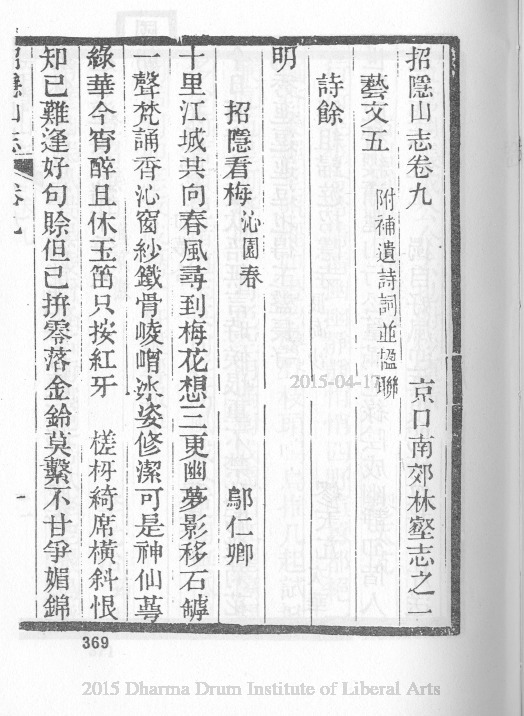 招隱山志卷九　京口南郊林壑志之二
藝文五　附補遺詩詞並楹聯
詩餘
明
招隱看梅　沁園春　鄔仁卿
十里江城共向春風尋到梅花想三更幽夢影移石罅
一聲梵誦香沁窗紗鐵骨崚嶒冰姿修潔可是神仙萼
綠華今宵醉且休玉笛只按紅牙　槎枒綺席橫斜恨
知己難逢好句賒但已拚零落金鈴莫繫不甘爭媚錦
招隱山志　卷九　一
369
2015-04-17
2015 Dharma Drum Institute of Liberal Arts